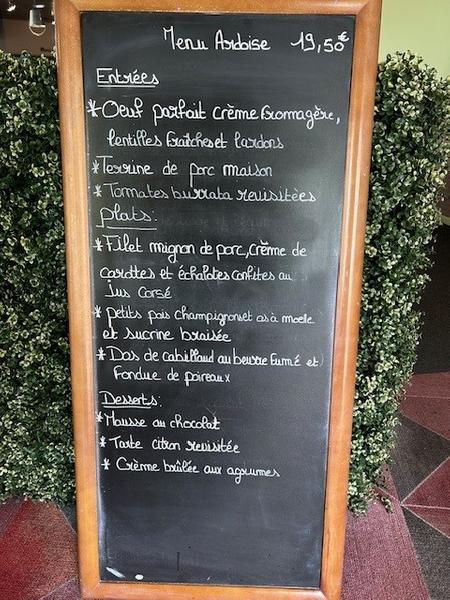 Menu Ardoise 19,50€
Entrées
* Oeuf parfait crème fromagère,
lentilles fraîches et lardons
* Terrine de porc maison
* Tomates burrata revisitées
plats:
* Filet mignon de porc, crème de
carottes et échalotes confites au
jus corsé
* petits pois champignons et os à moelle
et sucrine braisée
* Dos de cabillaud au beurre fumé et
fondue de poireaux
Desserts:
* Mousse au chocolat
* Tarte citron revisitée
* Crème brûlée aux agrumes